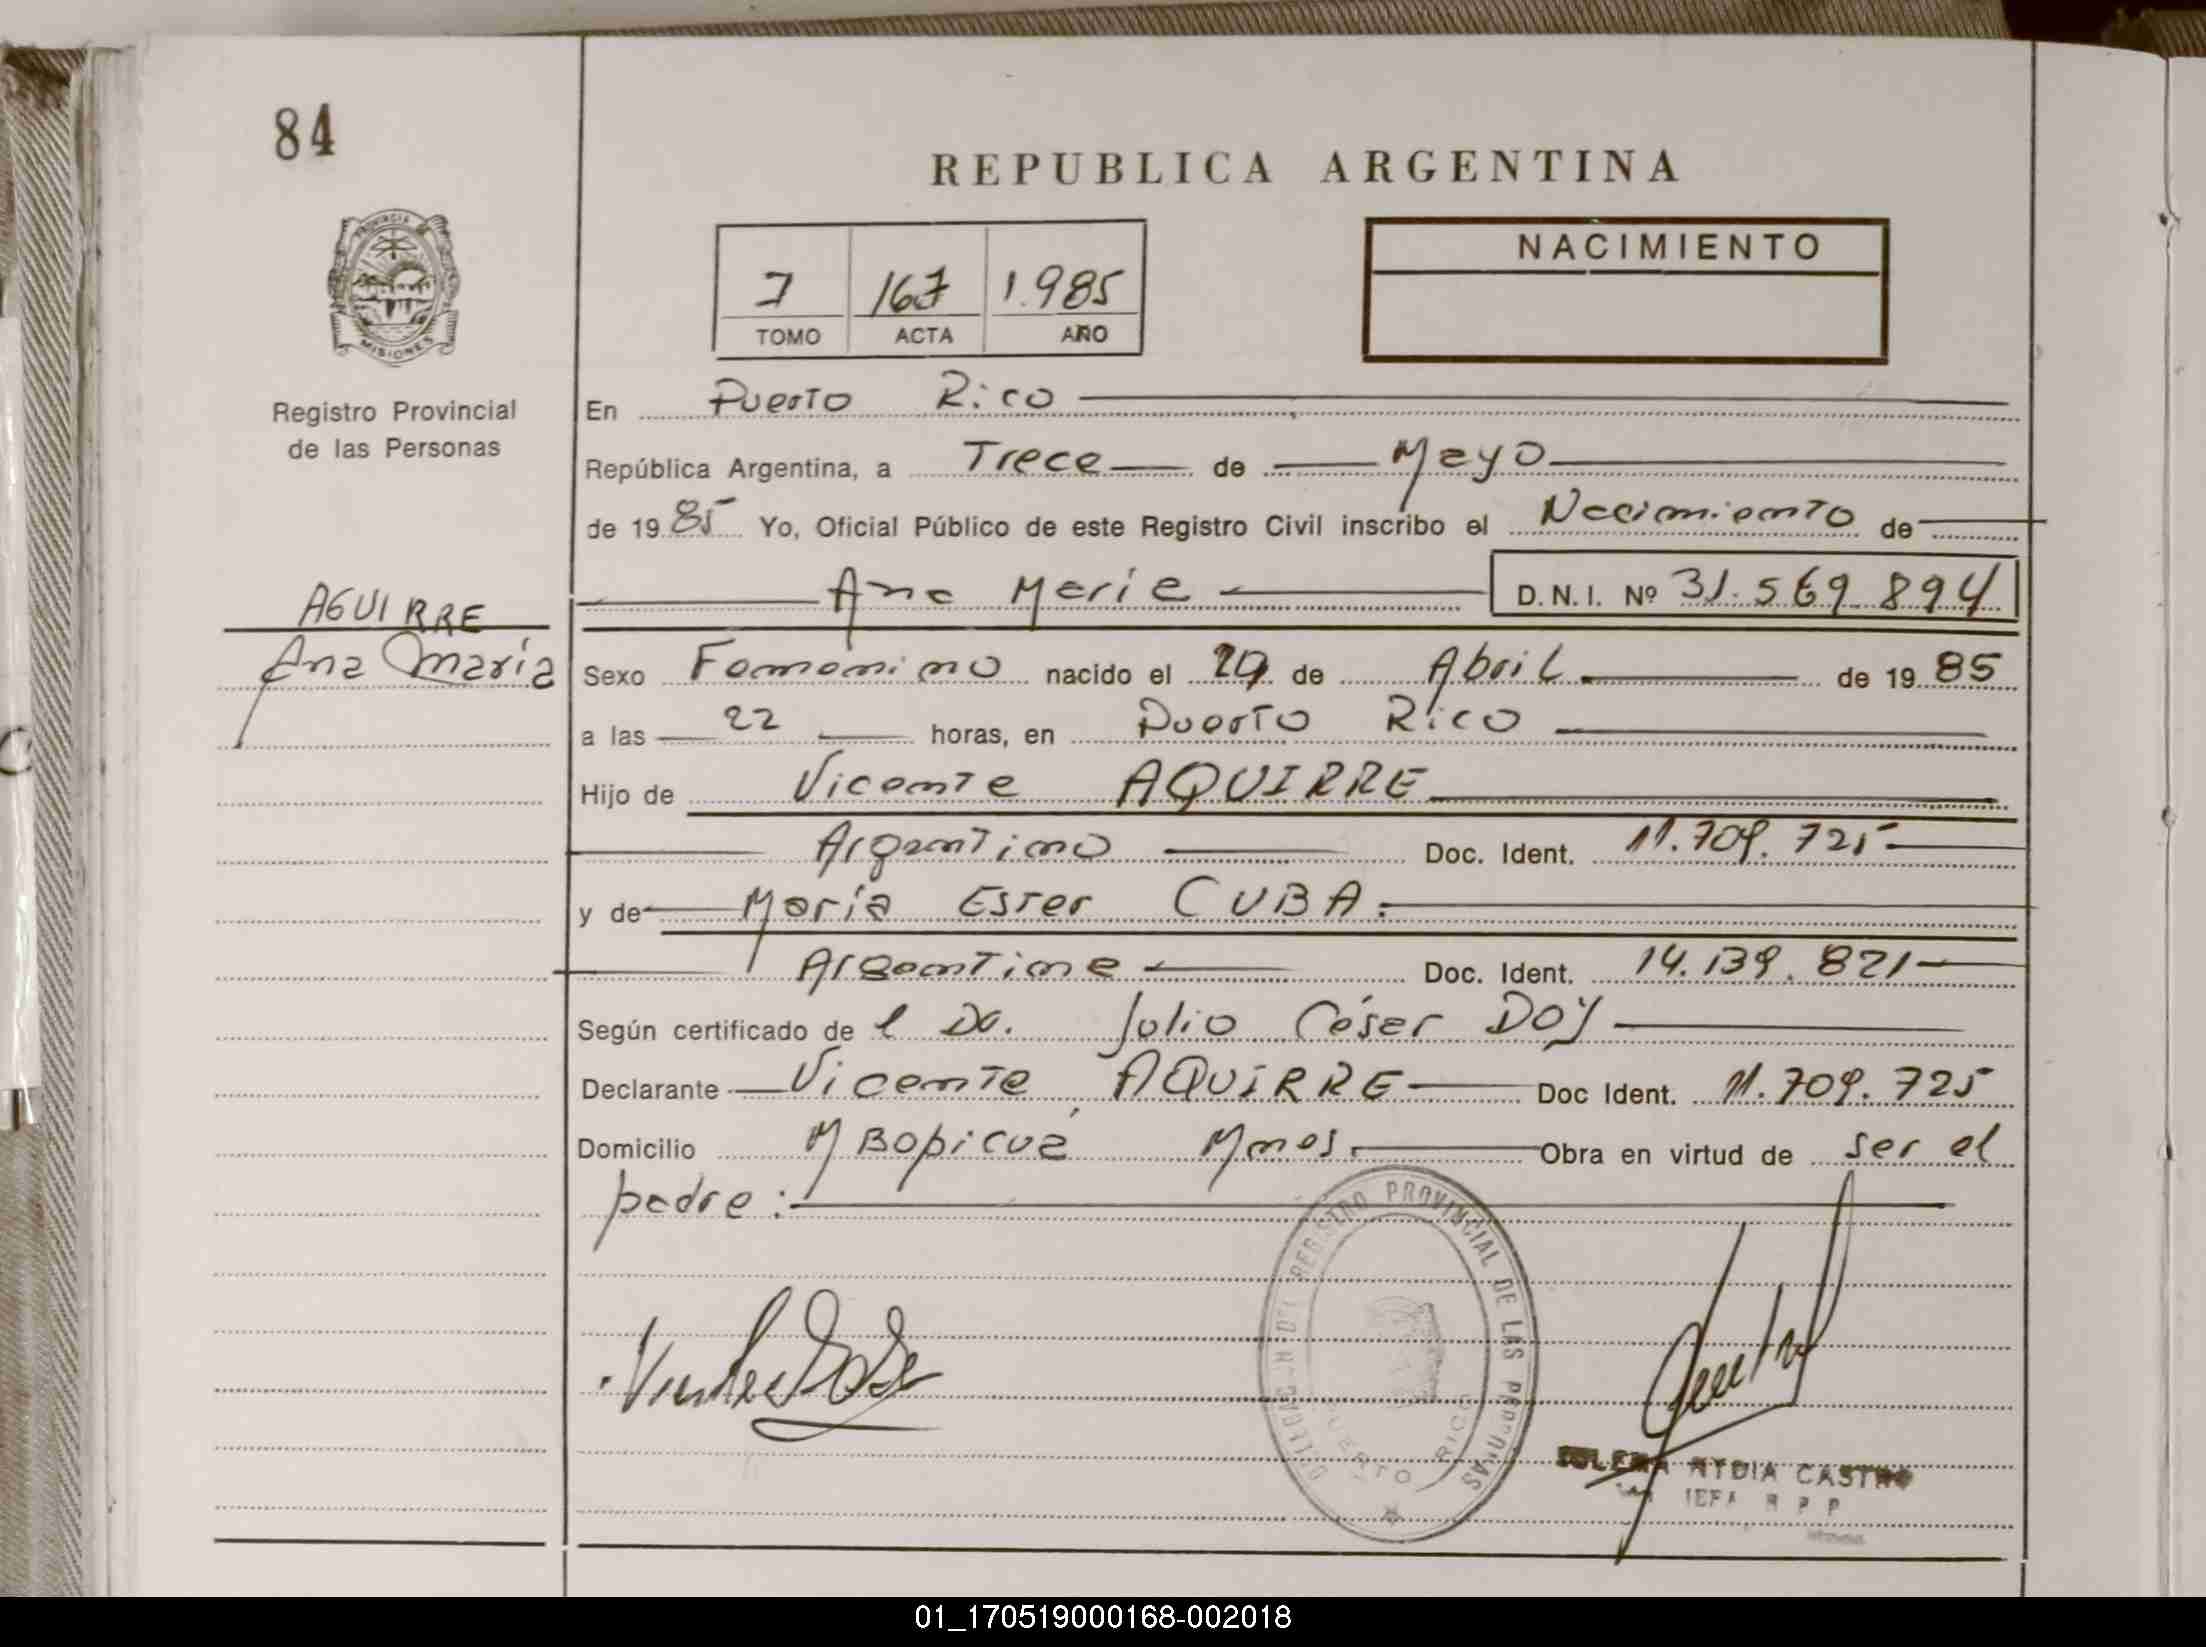 84
REPUBLICA ARGENTINA
PROVINCIA
MISIONES
Registro Provincial
de las Personas
I 167 1.985
TOMO ACTA AÑO
NACIMIENTO
En Puerto Rico
República Argentina, a Trece de Mayo
de 19 85 Yo, Oficial Público de este Registro Civil inscribo el Nacimiento de
Ana María D.N.I. Nº 31.569.894
AGUIRRE
Ana María
Sexo Femenino nacido el de Abril de 19 85
a las 22 horas, en Puerto Rico
Hijo de Vicente AGUIRRE
Argentino Doc. Ident. 11.709.725
y de María Ester CUBA.
Argentina Doc. Ident. 14.139.821
Según certificado de l Dr. Julio César DOY
Declarante Vicente AGUIRRE Doc Ident. 11.709.725
Domicilio Mbopicuá Mnes. Obra en virtud de ser el
padre:
DELEGACION DEL REGISTRO PROVINCIAL DE LAS PERSONAS
PUERTO RICO
NYDIA CASTRO
JEFA R P P
01_170519000168-002018